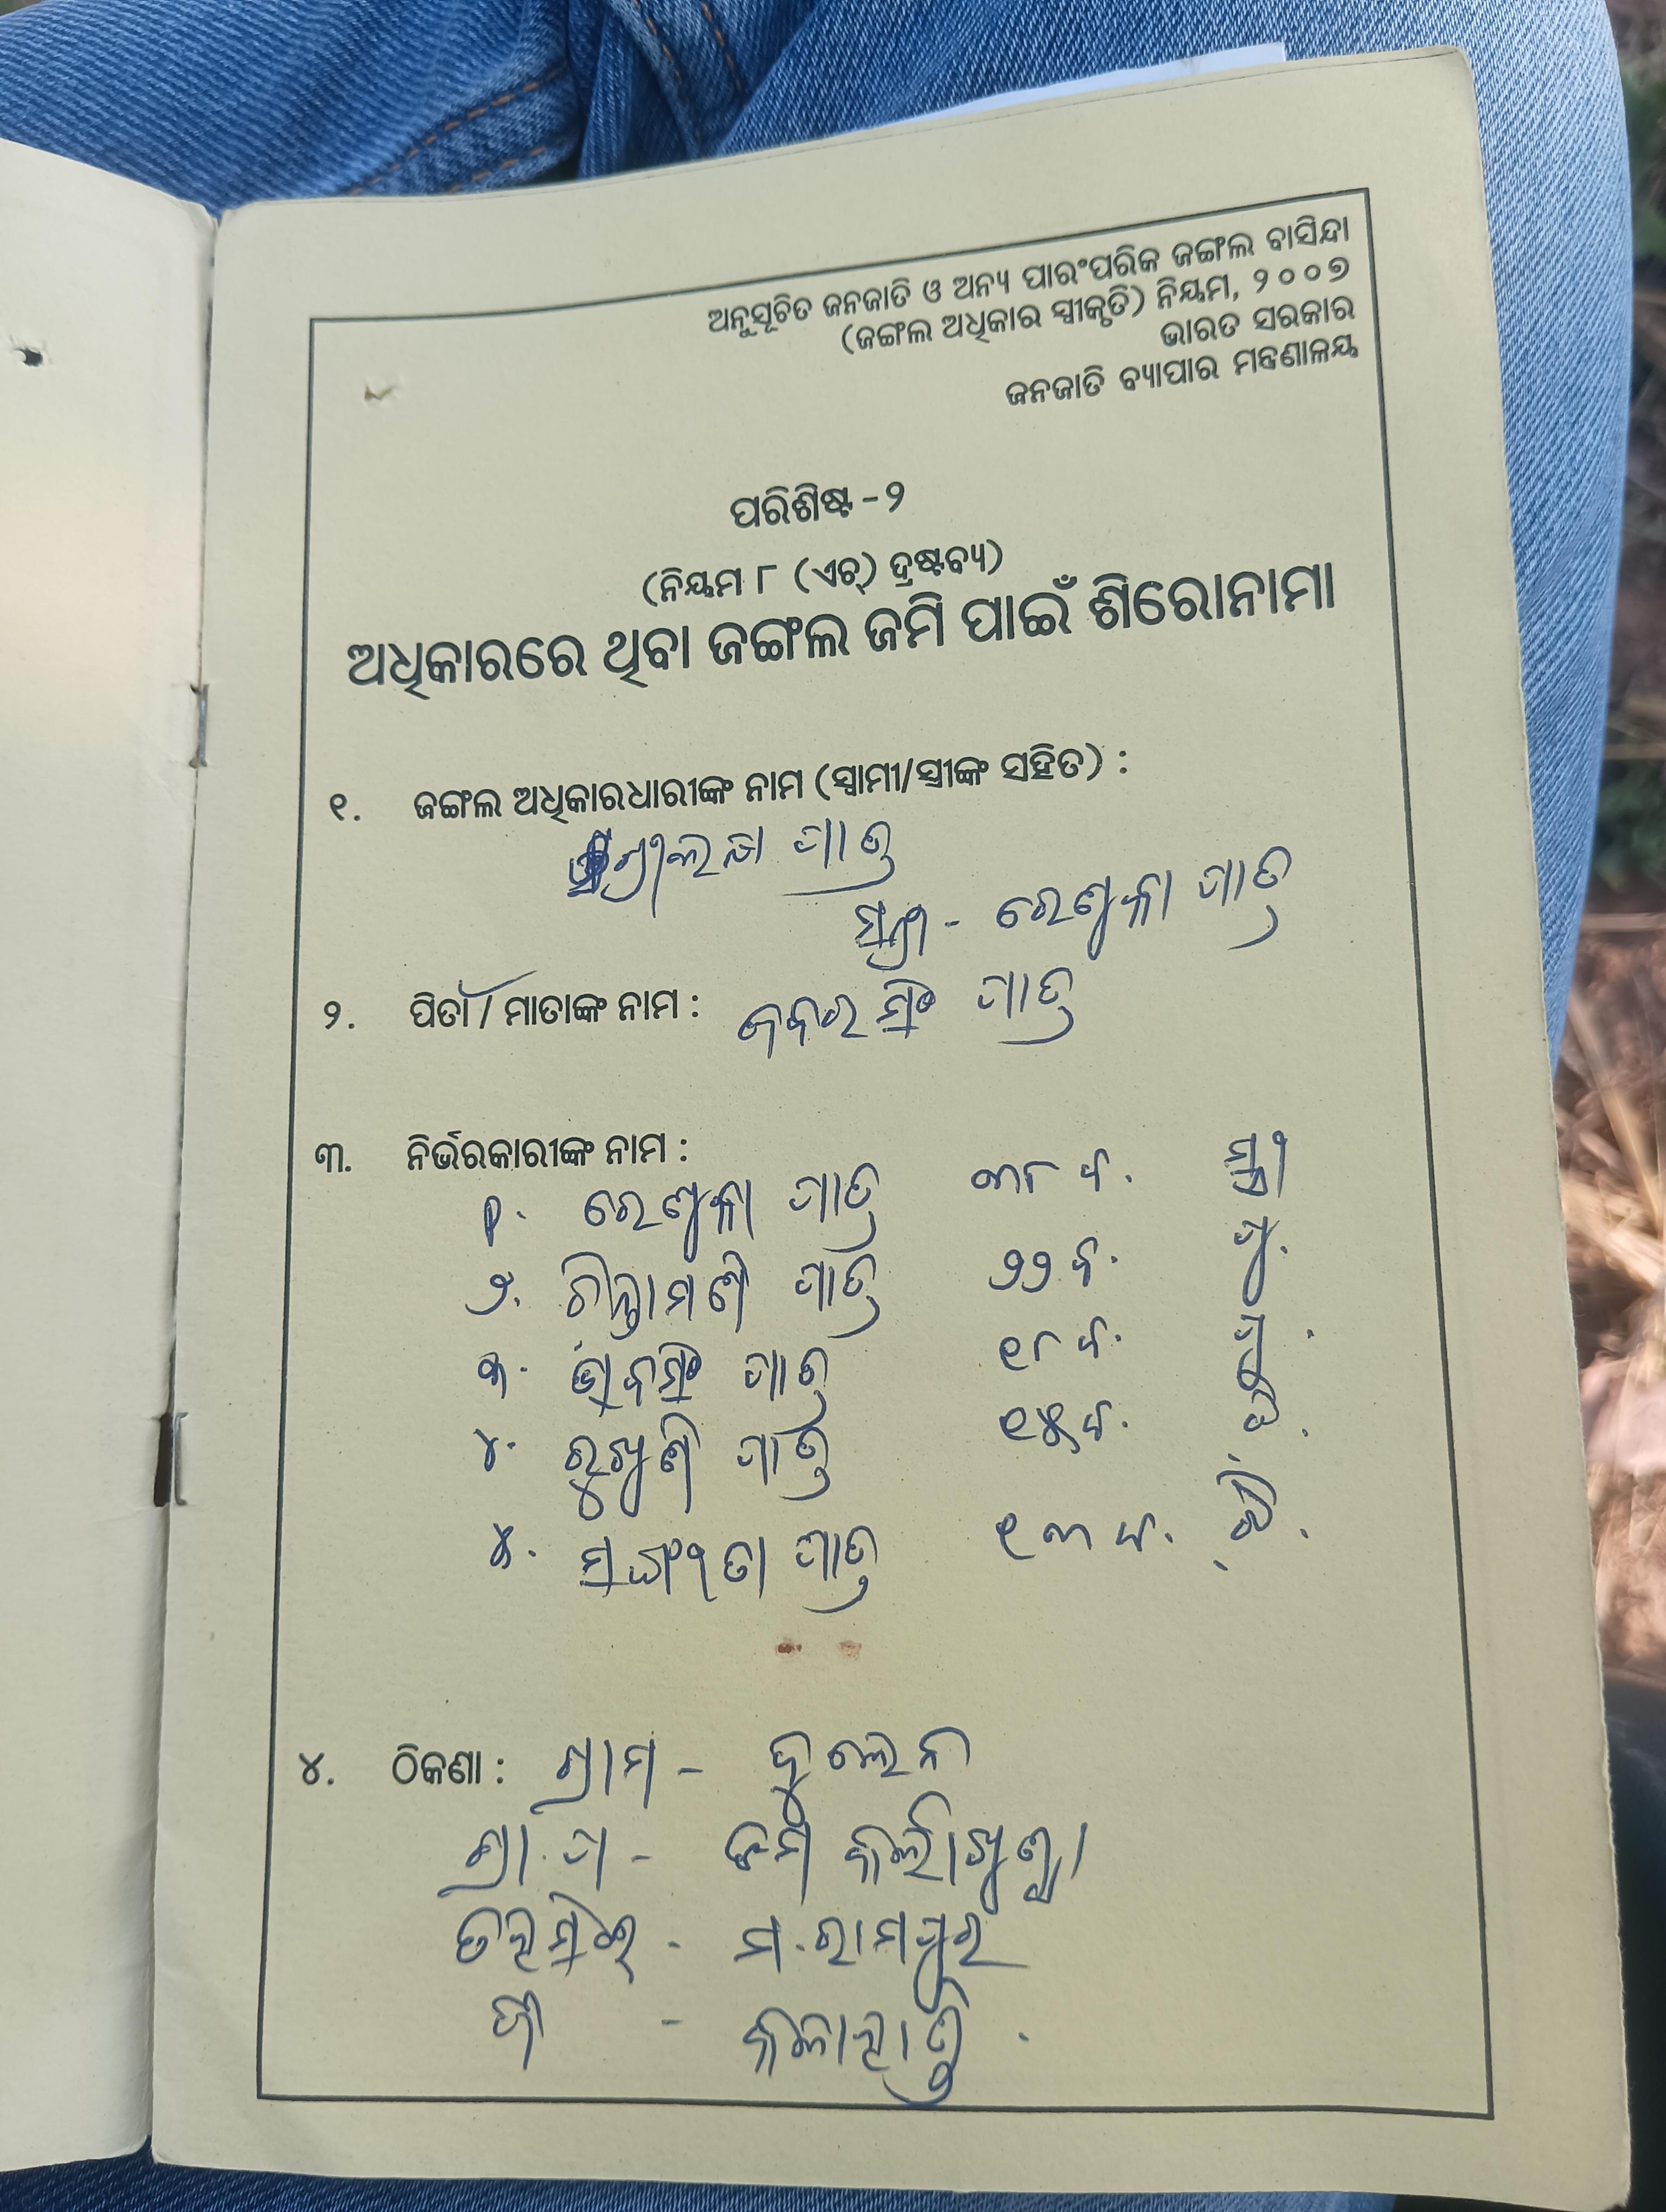 ଅନୁସୂଚିତ ଜନଜାତି ଓ ଅନ୍ୟ ପାରଂପରିକ ଜଙ୍ଗଲ ବାସିନ୍ଦା
(ଜଙ୍ଗଲ ଅଧିକାର ସ୍ୱୀକୃତି) ନିୟମ, ୨୦୦୭
ଭାରତ ସରକାର
ଜନଜାତି ବ୍ୟାପାର ମନ୍ତ୍ରଣାଳୟ
ପରିଶିଷ୍ଟ -୨
(ନିୟମ ୮ (ଏଚ୍) ଦ୍ରଷ୍ଟବ୍ୟ)
ଅଧିକାରରେ ଥିବା ଜଙ୍ଗଲ ଜମି ପାଇଁ ଶିରୋନାମା
୧. ଜଙ୍ଗଲ ଅଧିକାରଧାରୀଙ୍କ ନାମ (ସ୍ୱାମୀ/ସ୍ତ୍ରୀଙ୍କ ସହିତ) :
ସ୍ତ୍ରୀ - ରେଣୁକା ପାତ୍ର
୨. ପିତା / ମାତାଙ୍କ ନାମ : ପାତ୍ର
୩. ନିର୍ଭରକାରୀଙ୍କ ନାମ :
୧. ରେଣୁକା ପାତ୍ର ୩୮ ବ. ସ୍ତ୍ରୀ
୨. ଚିନ୍ତାମଣି ପାତ୍ର ୨୨ ବ. ପୁ.
୩. ପାତ୍ର ୧୮ ବ. ପୁ.
୪. ପାତ୍ର ୧୫ ବ.
୫. ପାତ୍ର ୧୩ ବ.
୪. ଠିକଣା : ଗ୍ରାମ -
ଗ୍ରା. ପ -
ତହସିଲ୍ - ମ. ରାମପୁର
ଜି - କଳାହାଣ୍ଡି.